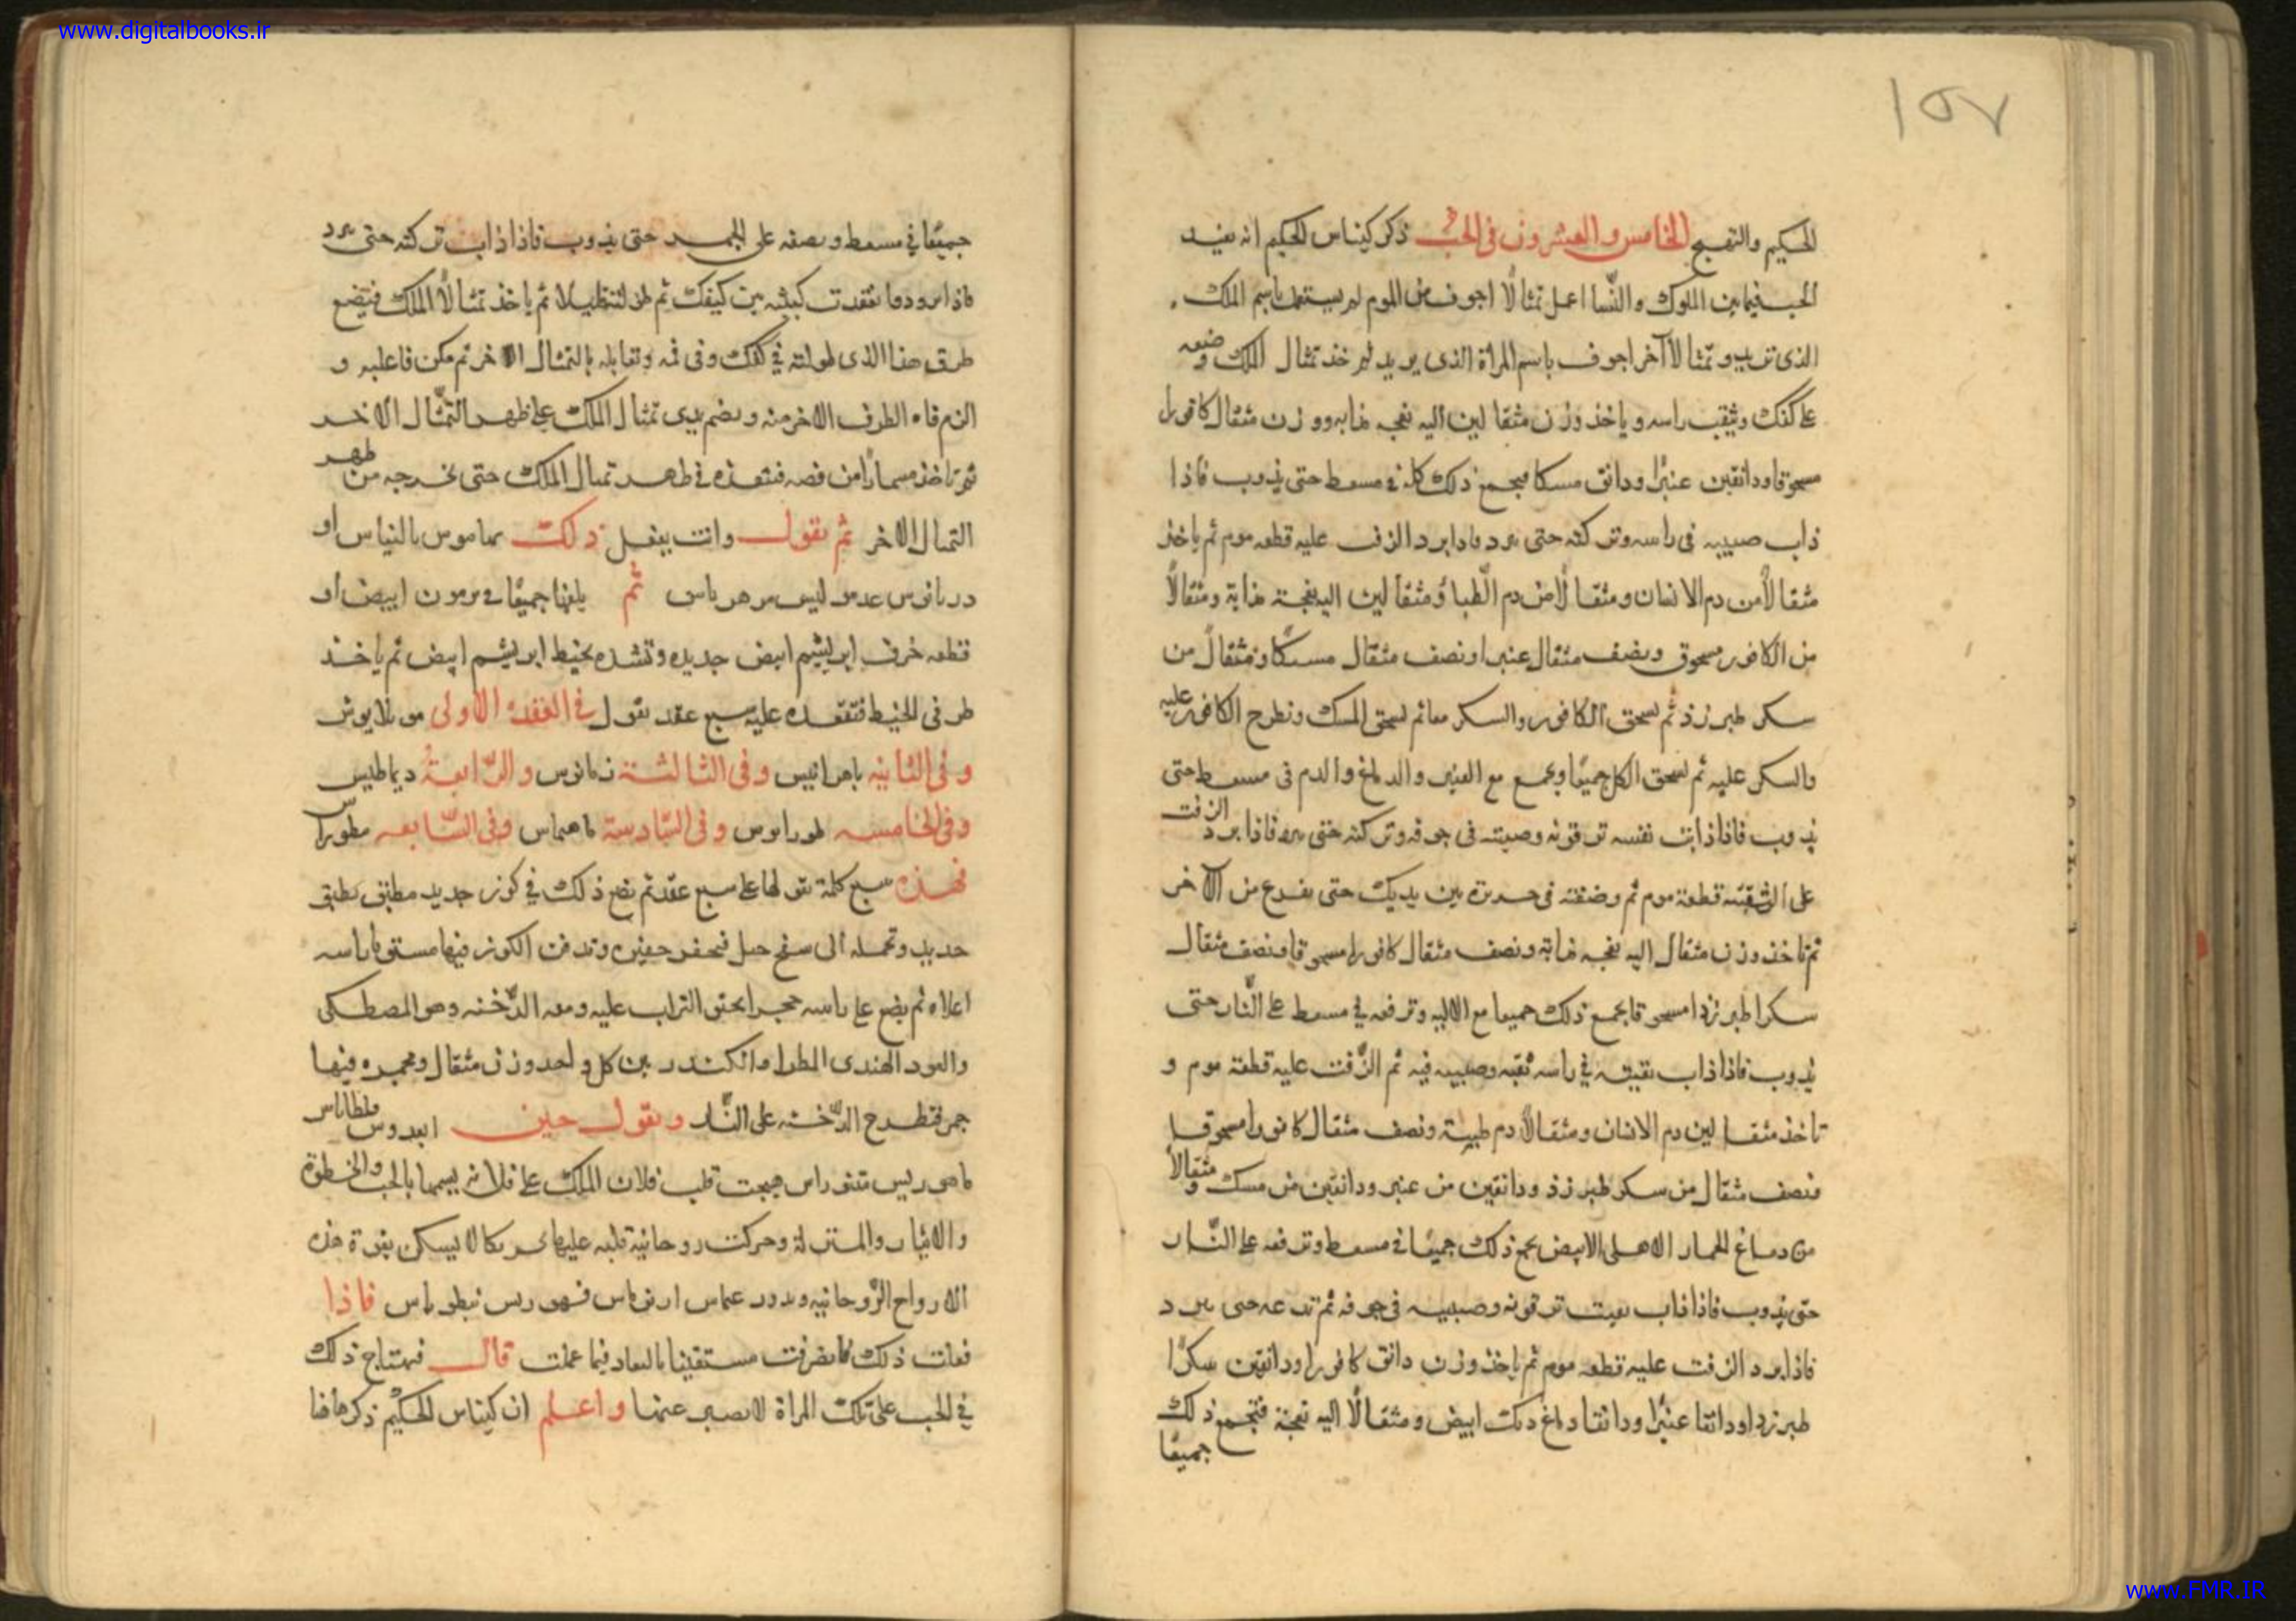 www.digitalbooks.ir
١٥٧
الحكيم والتهيج الخامس والعشرون فى الحب ذكر كيناس الحكيم انه يفيد
الحب فيما بين الملوك والنسا اعمل تمثالًا اجوف من الموم لم يستعمل باسم الملك
الذى تريد وتمثالا آخر اجوف باسم المراة الذى يريد ثم خذ تمثال الملك وضعه
على كفك وثيقب راسه وياخذ وزن مثقالين اليه نعجه مذابه ووزن مثقال كافورا
مسحوقا ودانقين عنبرًا ودانق مسكا فيجمع ذلك كله فى مسعط حتى يذوب فاذا
ذاب صببه فى راسه وتركته حتى برد فاذا برد الزف عليه قطعه موم ثم ياخذ
مثقالًا من دم الانسان ومثقالًا من دم الظبا ومثقالين اليه نعجة مذابة ومثقالًا
من الكافور مسحوق ونصف مثقال عنبر اونصف مثقال مسكًا ومثقالًا من
سكر طبرزذ ثم يسحق الكافور والسكر معا ثم يسحق المسك ونطرح الكافور عليه
والسكر عليه ثم يسحق الكل جميعًا ويجمع مع العنبر والدماغ والدم فى مسعط حتى
يذوب فاذا ذابت نفسه ترقوته وصببته فى جوفه وتركته حتى برد فاذا برد الزفت
على الثقبته قطعة موم ثم وضعته فى حريرة بين يديك حتى يفرغ من الآخر
ثم تاخذ وزن مثقال اليه نعجه مذابة ونصف مثقال كافورا مسحوقا ونصف مثقال
سكرا طبرزدا مسحوقا يجمع ذلك جميعا مع الاليه وترفعه فى مسعط على النَّار حتى
يذوب فاذا ذاب نقبته فى راسه ثقبه وصببته فيه ثم الزفت عليه قطعة موم و
تاخذ مثقالين دم الانسان ومثقالًا دم ظبية ونصف مثقال كافورا مسحوقا
ونصف مثقال من سكر طبرزذ ودانقين من عنبر ودانقين من مسك ومثقالا
من دماغ الحمار الاهلى الابيض يجمع ذلك جميعًا فى مسعط وترفعه على النَّار
حتى يذوب فاذا ذاب نقبت ترقوته وصببته فى جوفه ثم تدعه حتى برد
فاذا برد الزفت عليه قطعه موم ثم ياخذ وزن دانق كافورا ودانقين سكرًا
طبرزدا ودانقا عنبرًا ودانقا دماغ ديك ابيض ومثقالًا اليه نعجة فتجمع ذلك
جميعًا
جميعًا فى مسعط وتصفه على الجمر حتى يذوب فاذا ذاب تركته حتى برد
ثم ياخذ تمثالًا الملك فيضع
طرف هذا الذى طولته فى كفك وفى فمه وتقابله بالتمثال الاخر ثم مكن فاعليه و
الزم فاه الطرف الاخر منه ويضم يدى تمثال الملك على ظهر التمثال الاخر
ثم تاخذ مسمارًا من فضه فتنفذه فى ظهر تمثال الملك حتى تخرجه من ظهر
التمثال الاخر ثم تقول وانت بفعل ذلك
ثم يلفها جميعًا فى ابيض او
قطعه خرف ابريشم ابيض جديده وتشده بخيط ابريشم ابيض ثم ياخذ
طرفى الخيط فتعقده عليه سبع عقد تقول فى العقدة الاولى
وفى الثانيه بامرانيس وفى الثالثة والرابعة دياطيس
وفى الخامسه وفى السّادسة وفى السّابعه
فهذه سبع كلمة تقولها على سبع عقد ثم يضع ذلك فى كوز جديد مطبق بطبق
جديد وتحمله الى سفح جبل فيحفر حفيره وتدفن الكوز فيها مستوفا راسه
اعلاه ثم يضع على راسه حجرا بحتو التراب عليه ومعه الدَّخنه وهو المصطكى
والعود الهندى المطرا والكندر من كل واحد وزن مثقال ومجمره فيها
جمر فتطرح الدّخنه على النَّار وتقول حين
هيجت قلب فلان الملك على فلانه يسميها بالحب والخطوة
والايثار والمنزلة وحركت روحانية قلبه عليها تحريكا لا يسكن بقوة هذه
الارواح الرّوحانيه فاذا
فعلت ذلك فانصرفت مستيقنا فيما عملت قال فيهتاج ذلك
فى الحب على تلك المراة لا يصبر عنها واعلم ان كيناس الحكيم ذكر هاهنا
www.FMR.IR